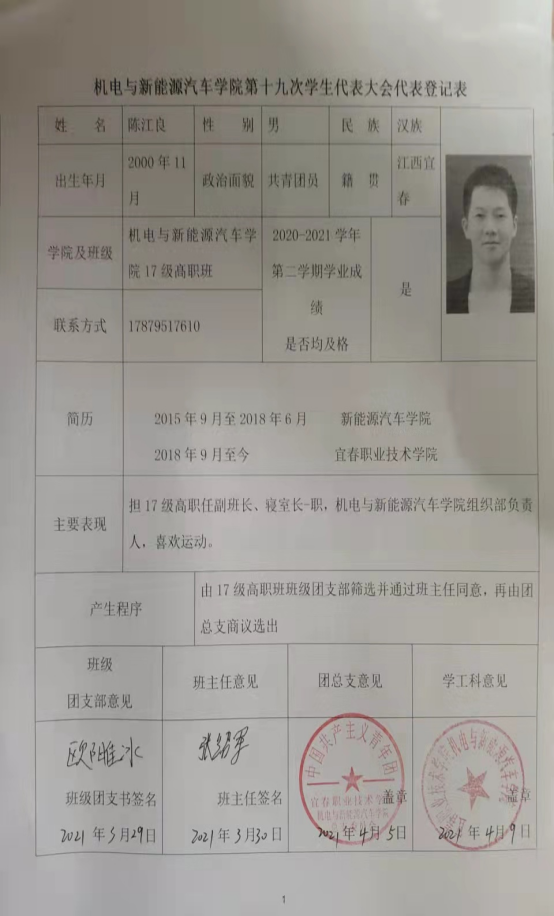 机电与新能源汽车学院第十九次学生代表大会代表登记表
姓 名 陈江良 性 别 男 民 族 汉族
出生年月 2000年11月 政治面貌 共青团员 籍 贯 江西宜春
学院及班级 机电与新能源汽车学院17级高职班 2020-2021学年第二学期学业成绩是否均及格 是
联系方式 17879517610
简历 2015年9月至2018年6月 新能源汽车学院
2018年9月至今 宜春职业技术学院
主要表现 担17级高职任副班长、寝室长-职，机电与新能源汽车学院组织部负责
人，喜欢运动。
产生程序 由17级高职班班级团支部筛选并通过班主任同意，再由团
总支商议选出
班级
团支部意见 班主任意见 团总支意见 学工科意见
中国共产主义青年团
宜春职业技术学院
机电与新能源汽车学院
机电与新能源汽车学院
班级团支书签名 班主任签名 盖章 盖章
2021年3月29日 2021年3月30日 2021年4月5日 2021年4月9日
1